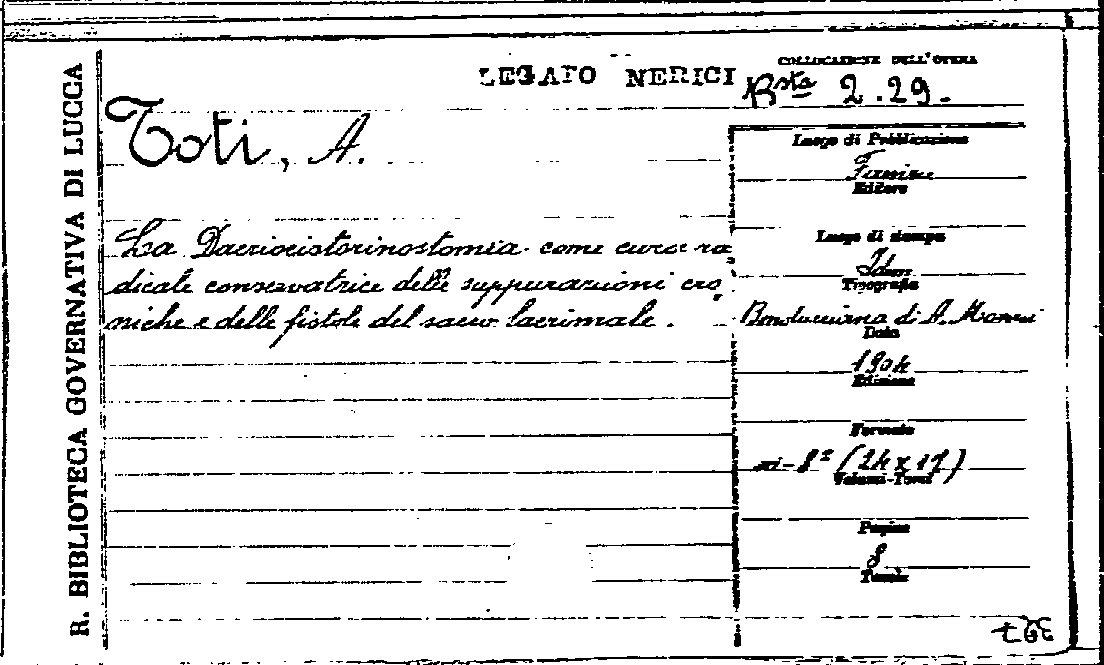 R. BIBLIOTECA GOVERNATIVA DI LUCCA
LEGATO NERICI
COLLOCAZIONE DELL'OPERA
Bsta 2.29.
Toti, A.
La Dacriocistorinostomia come cura ra
dicale conservatrice delle suppurazioni cro
niche e delle fistole del sacco lacrimale.
Luogo di Pubblicazione
Firenze
Editore
Luogo di stampa
Idem
Tipografia
di A.
Data
1904
Edizione
Formato
in-8° (24 x 17)
Volumi-Tomi
Pagine
8
Tavole